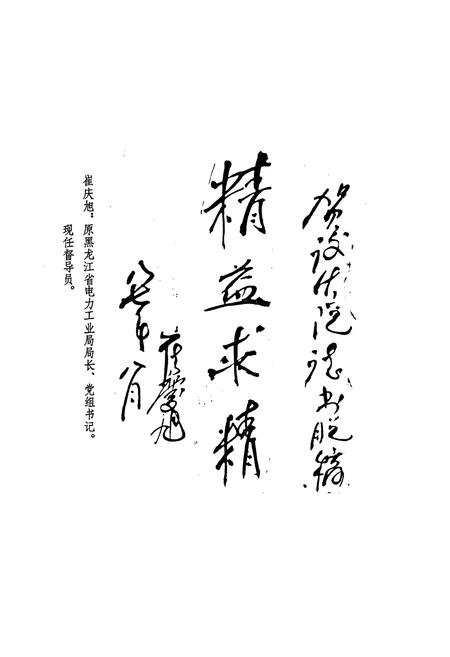 贺设计院誌书脱稿
精益求精
崔慶旭
八七年八月
崔庆旭：原黑龙江省电力工业局局长、党组书记。
现任督导员。